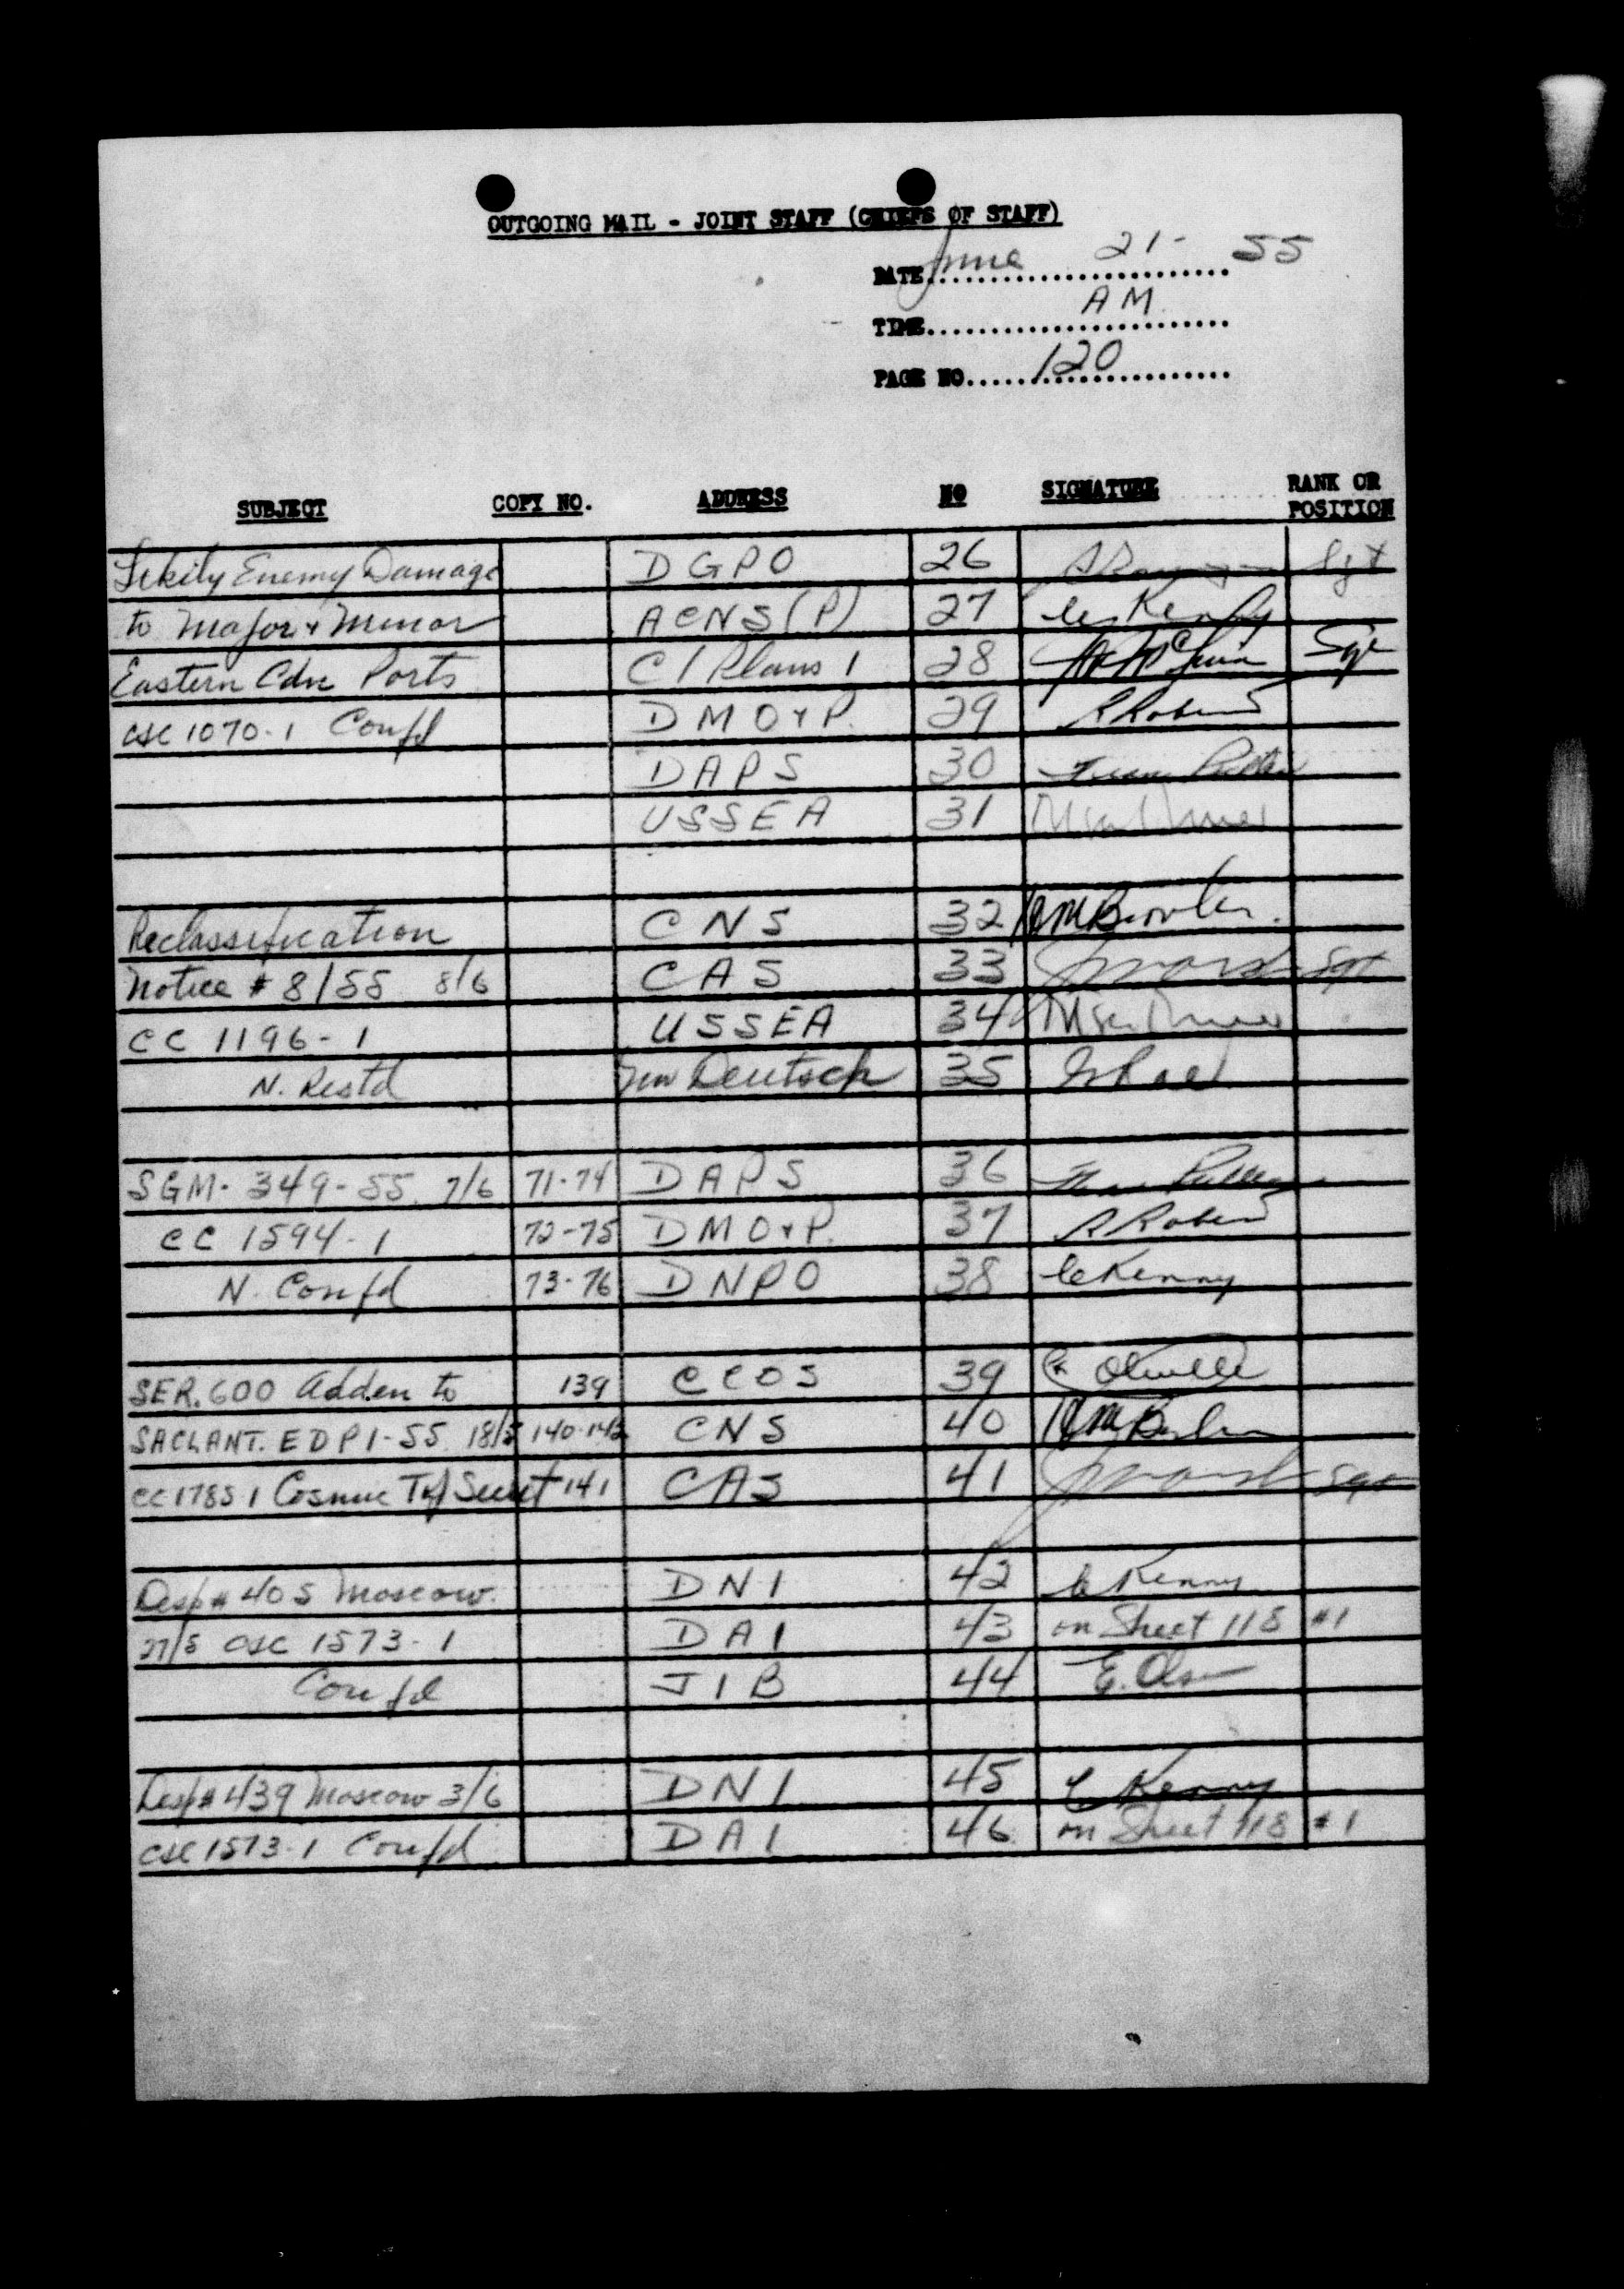 OUTGOING MAIL - JOINT STAFF (CHIEFS OF STAFF)
DATE June 21 - 55
TIME AM.
PAGE NO. 120
SUBJECT COPY NO. ADDRESS NO SIGNATURE RANK OR POSITION
Likily Enemy Damage DGPO 26 Sgt
to Major & Minor ACNS(P) 27 Kenny
Eastern Cdn Ports C/Plans 1 28 Sgt
CSC 1070-1 Confd DMO&P. 29 R Robert
DAPS 30
USSEA 31
Reclassification CNS 32
Notice # 8/55 8/6 CAS 33 Sgt
CC 1196-1 USSEA 34
N. Restd Deutsch 35
SGM-349-55 7/6 71-74 DAPS 36
CC 1594-1 72-75 DMO&P. 37 R Robert
N. Confd 73-76 DNPO 38 C Kenny
SER. 600 Adden to 139 CCOS 39
SACLANT. EDP1-55 18/5 140-142 CNS 40
CC1785-1 Cosmic Top Secret 141 CAS 41 Sgt
Desp # 405 Moscow. DNI 42 C Kenny
27/5 CSC 1573-1 DAI 43 on Sheet 118 #1
Confd JIB 44 E. Olsen
Desp # 439 Moscow 3/6 DNI 45 C Kenny
CSC 1573-1 Confd DAI 46 on Sheet 118 #1